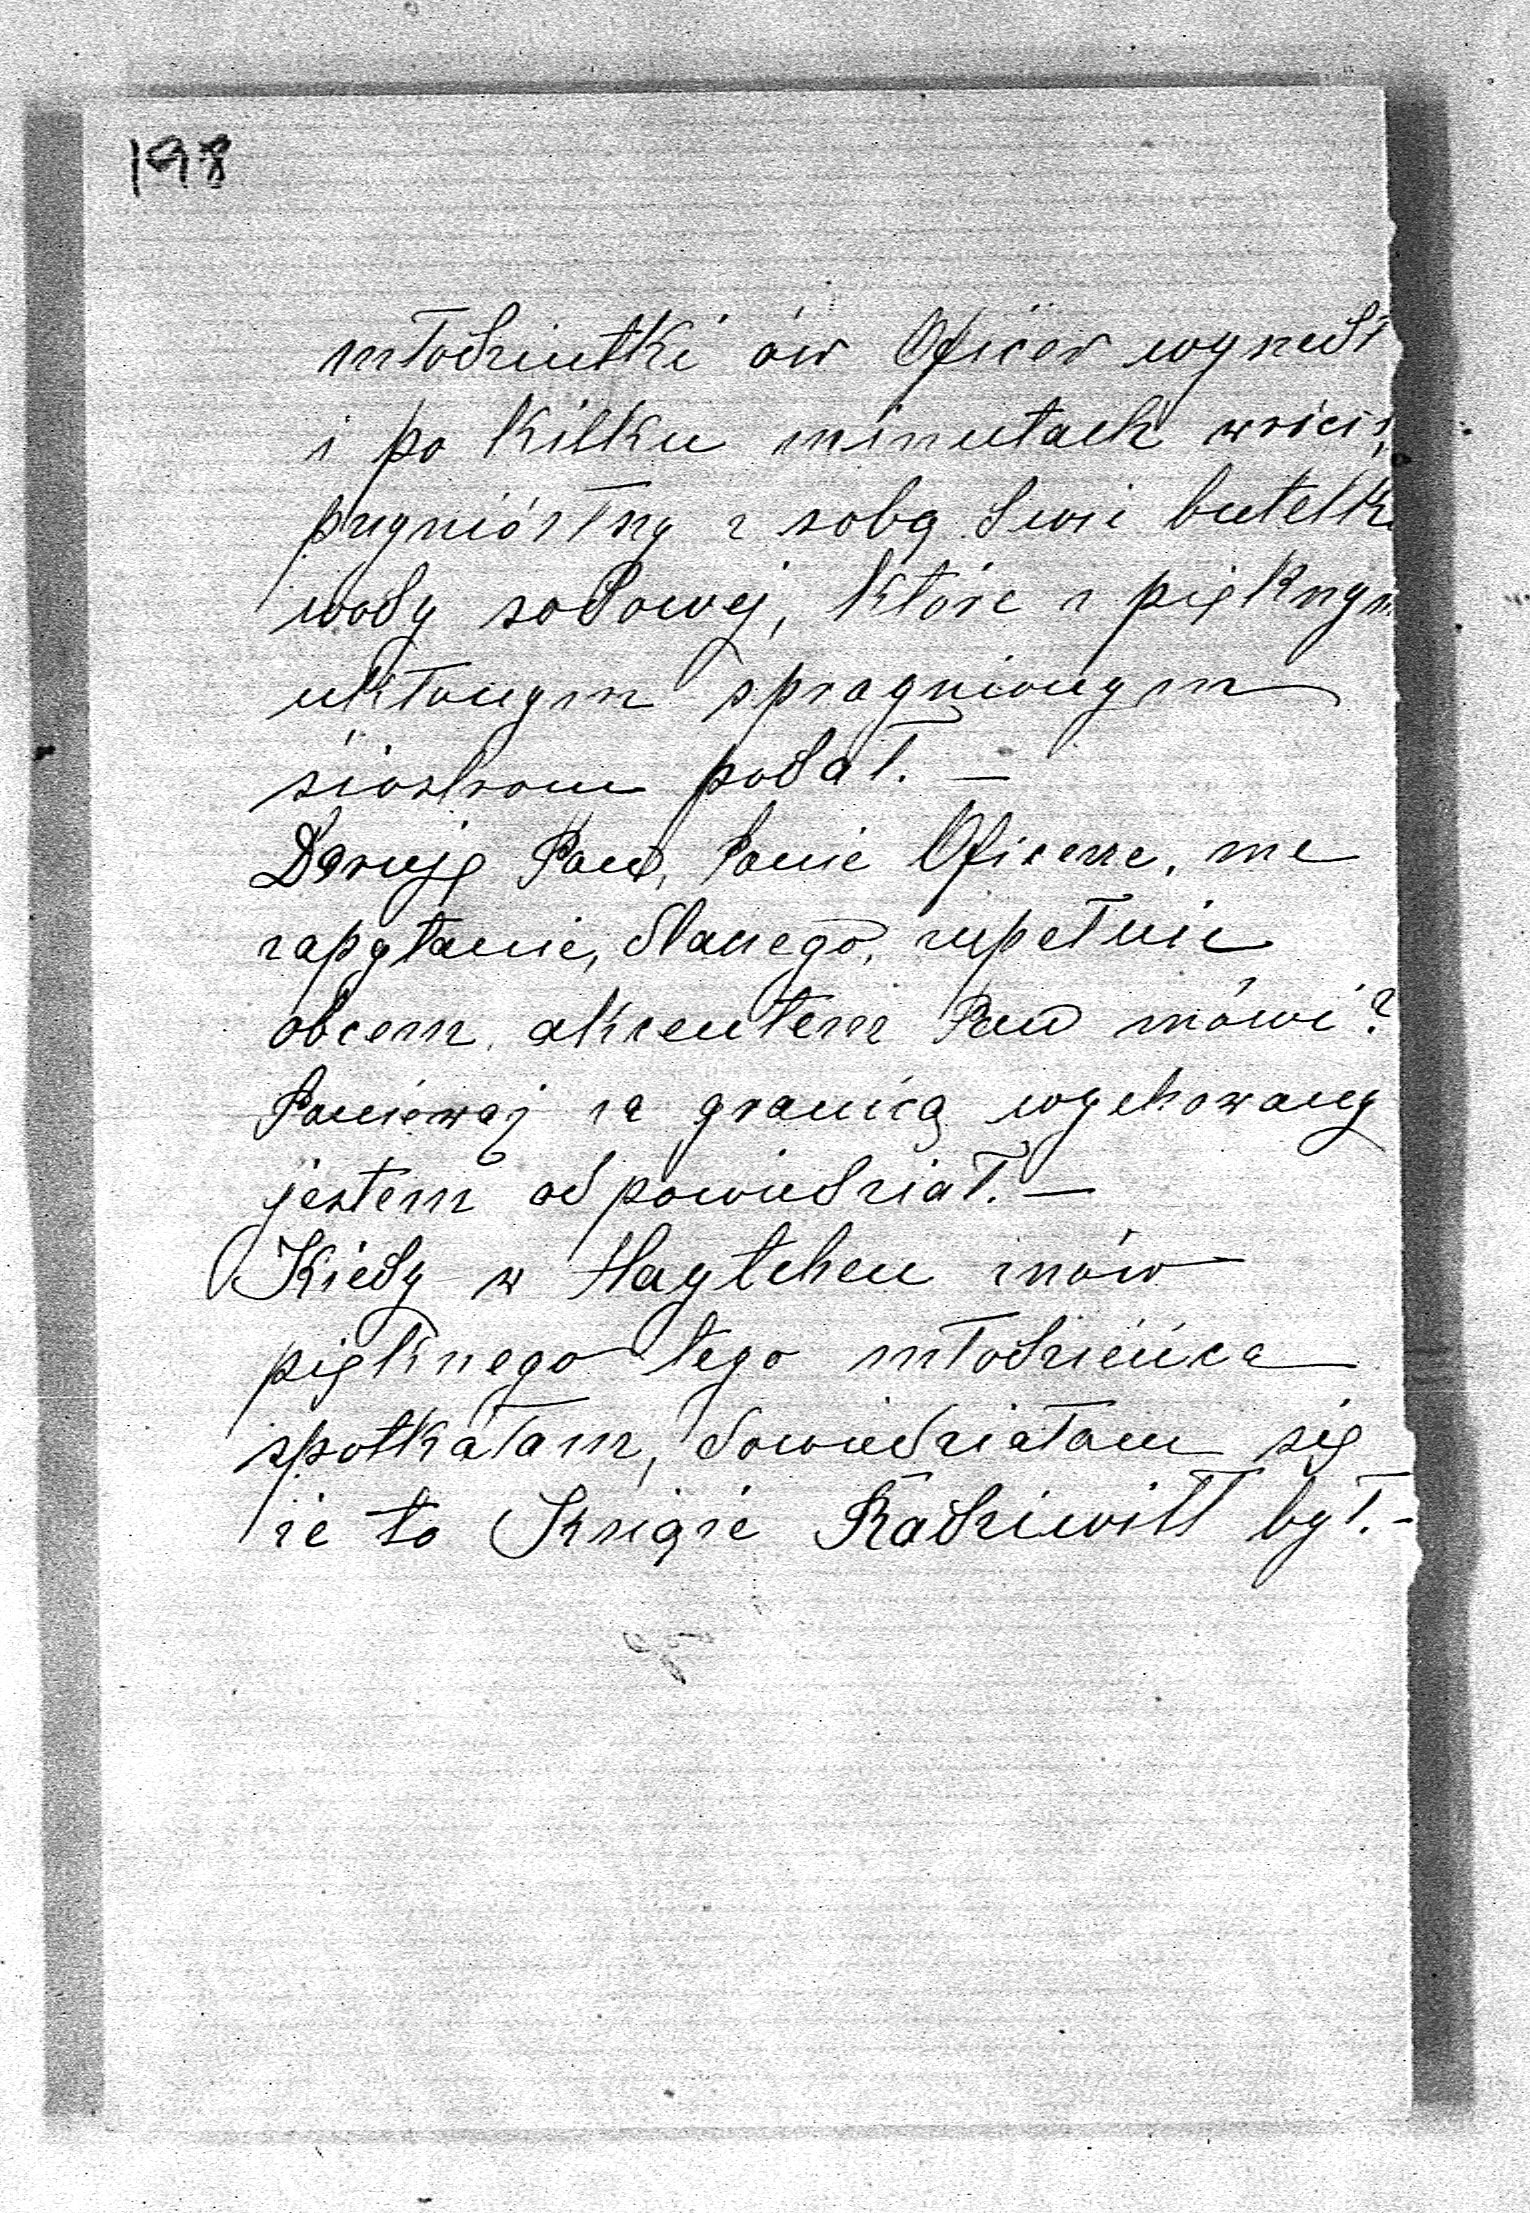 198
młodziutki ów Oficer wyszedł
i po kilku minutach wrócił,
przyniósłszy z sobą dwie butelki
wody sodowej, które z pięknym
ukłonym spragnionym
siostrom podał. —
Daruję Pan, Panie Oficerze, me
zapytanie, dlaczego, zupełnie
obcem, akcentem Pan mówi?
Ponieważ za granicą wychowany
jestem odpowiedział. —
Kiedy w Haytchen znów
pięknego tego młodzieńca
spotkałam, dowiedziałam się
że to Książe Radziwiłł był. —